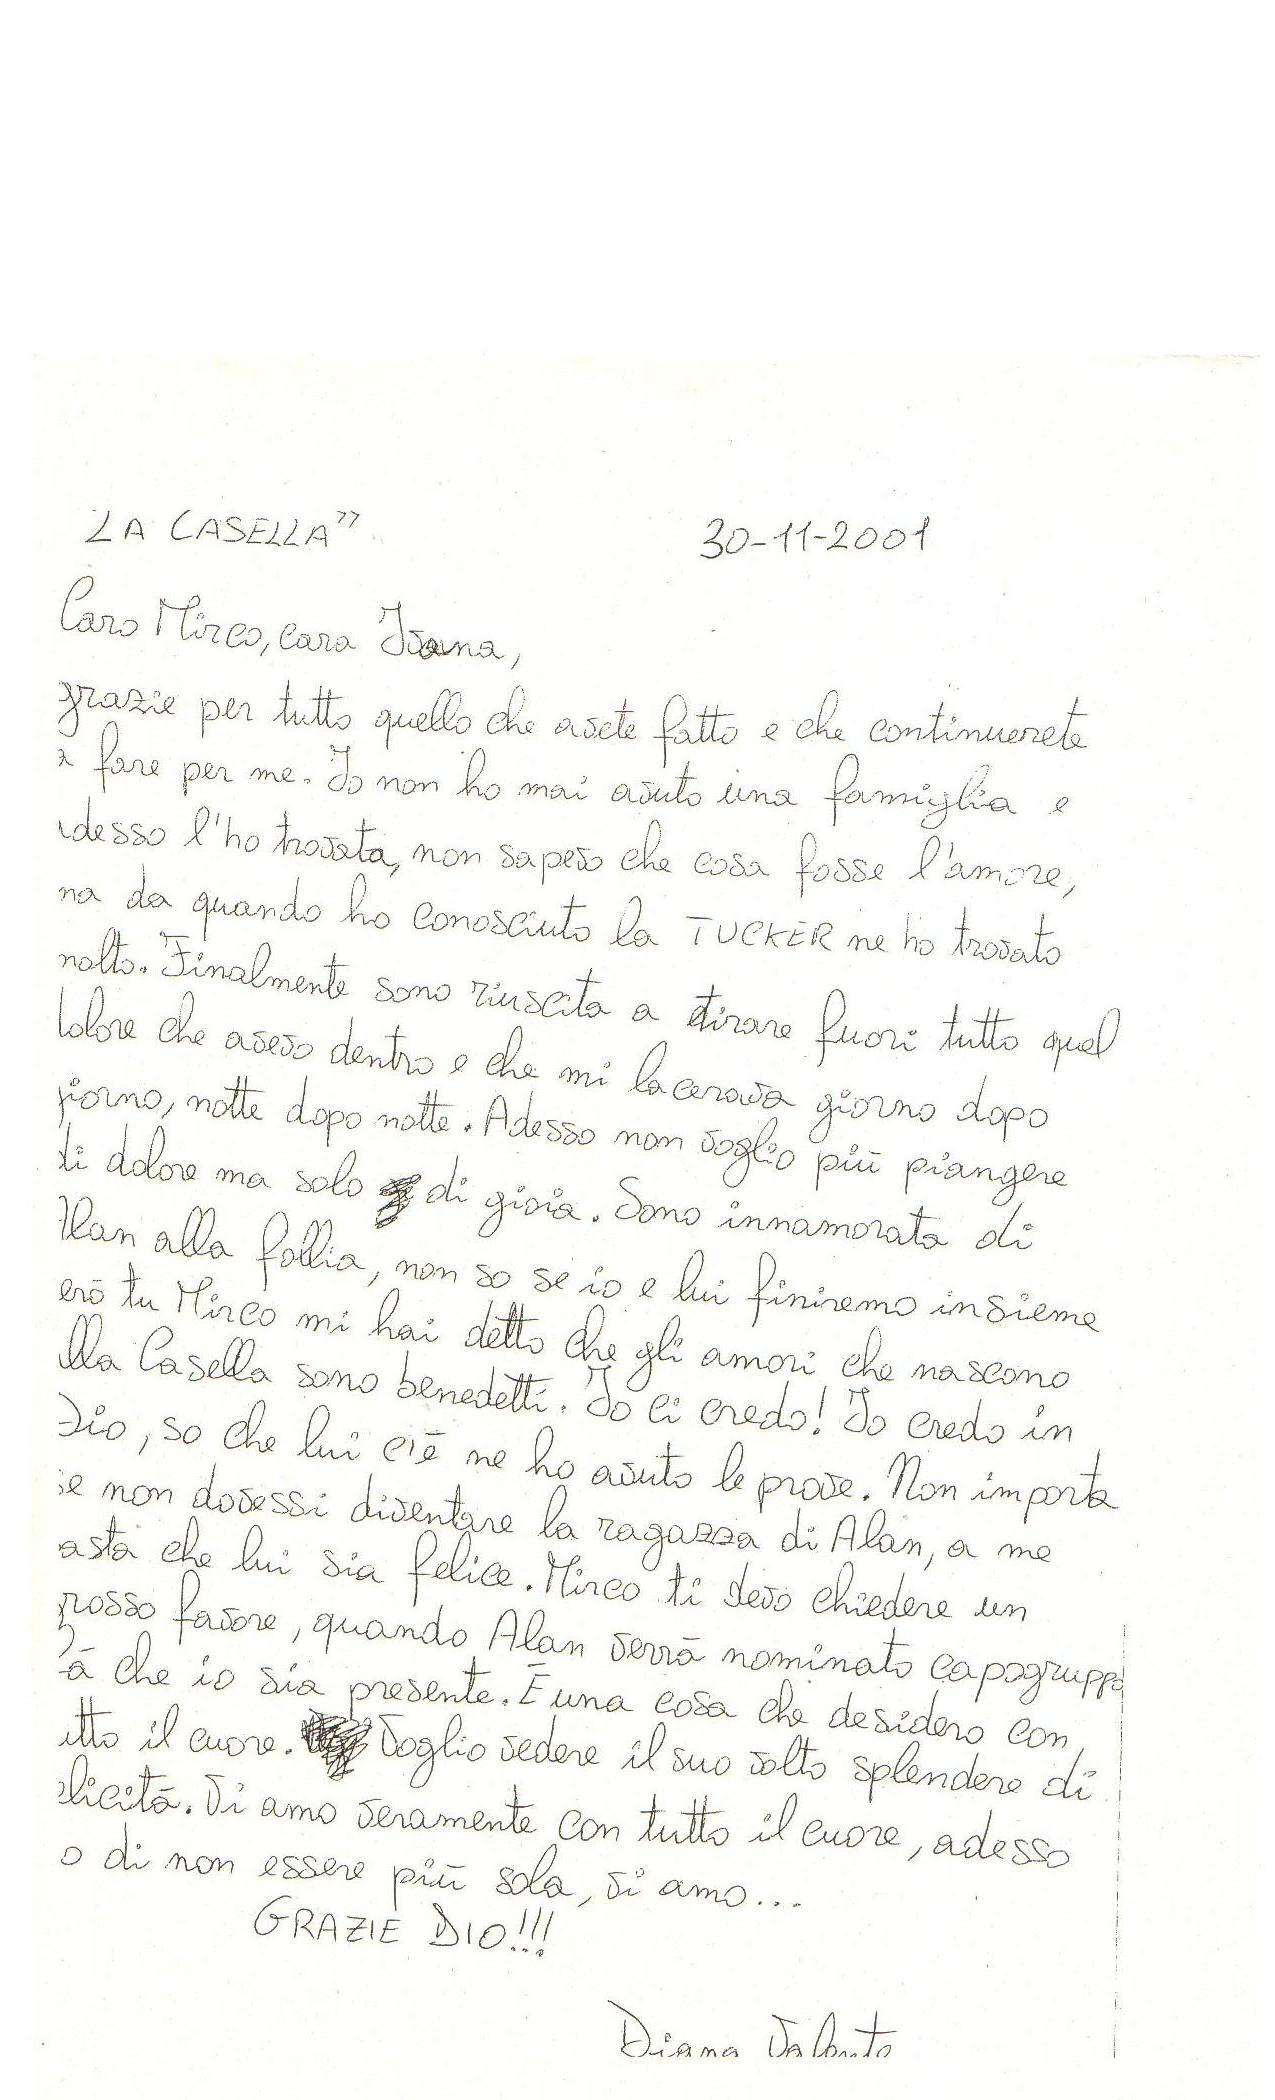 LA CASELLA" 30-11-2001
Caro Mirco, cara Ivana,
grazie per tutto quello che avete fatto e che continuerete
a fare per me. Io non ho mai avuto una famiglia e
adesso l'ho trovata, non sapevo che cosa fosse l'amore,
ma da quando ho conosciuto la TUCKER ne ho trovato
molto. Finalmente sono riuscita a tirare fuori tutto quel
dolore che avevo dentro e che mi lacerava giorno dopo
giorno, notte dopo notte. Adesso non voglio più piangere
di dolore ma solo di gioia. Sono innamorata di
Alan alla follia, non so se io e lui finiremo insieme
erò tu Mirco mi hai detto che gli amori che nascono
lla Casella sono benedetti. Io ci credo! Io credo in
Dio, so che lui c'è ne ho avuto le prove. Non importa
se non dovessi diventare la ragazza di Alan, a me
asta che lui sia felice. Mirco ti devo chiedere un
grosso favore, quando Alan verrà nominato capogruppo
à che io sia presente. È una cosa che desidero con
utto il cuore. Voglio vedere il suo volto splendere di
elicità. Vi amo veramente con tutto il cuore, adesso
o di non essere più sola, vi amo...
GRAZIE DIO!!!
Diana